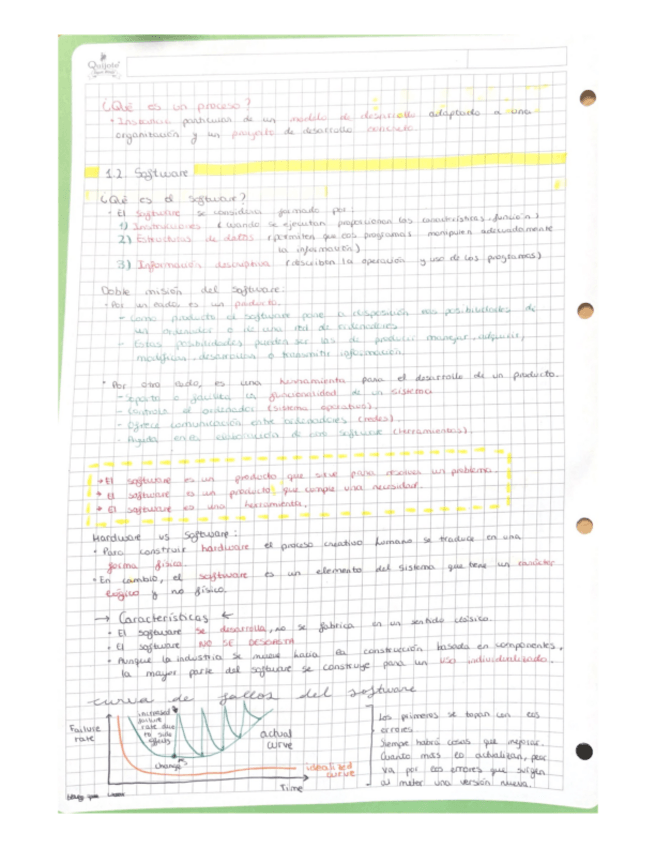 Quijote
¿Qué es un proceso?
• Instancia particular de un modelo de desarrollo adaptado a una
organización y un proyecto de desarrollo concreto.
1.2. Software
¿Qué es el software?
• El software se considera formado por:
1) Instrucciones (cuando se ejecutan proporcionan las características, función)
2) Estructuras de datos (permiten que los programas manipulen adecuadamente
la información)
3) Información descriptiva (describen la operación y uso de los programas)
Doble misión del software:
• Por un lado, es un producto.
- Como producto el software pone a disposición las posibilidades de
un ordenador o de una red de ordenadores
- Estas posibilidades pueden ser las de producir, manejar, adquirir,
modificar, o transmitir información
• Por otro lado, es una herramienta para el desarrollo de un producto.
- Soporta o facilita la funcionalidad de un sistema
- Controla el ordenador (sistema operativo).
- Ofrece comunicación entre ordenadores (redes).
- Ayuda en la construcción de otro software (herramientas).
• El software es un producto que sirve para resolver un problema.
• El software es un producto que cumple una necesidad.
• El software es una herramienta.
Hardware vs software:
• Para construir hardware el proceso creativo humano se traduce en una
forma física.
• En cambio, el software es un elemento del sistema que tiene un carácter
lógico y no físico.
→ Características ←
• El software se desarrolla, no se fabrica en un sentido clásico.
• El software NO SE DESGASTA
• Aunque la industria se mueve hacia la construcción basada en componentes,
la mayor parte del software se construye para un uso individualizado.
curva de fallos del software
Failure
rate
increased
failure
rate due
to side
effects
change
actual
curve
idealized
curve
Time
Los primeros se topan con los
errores
Siempre habrá cosas que mejorar.
Cuanto más lo actualizan, peor
va por los errores que surgen
al meter una versión nueva.